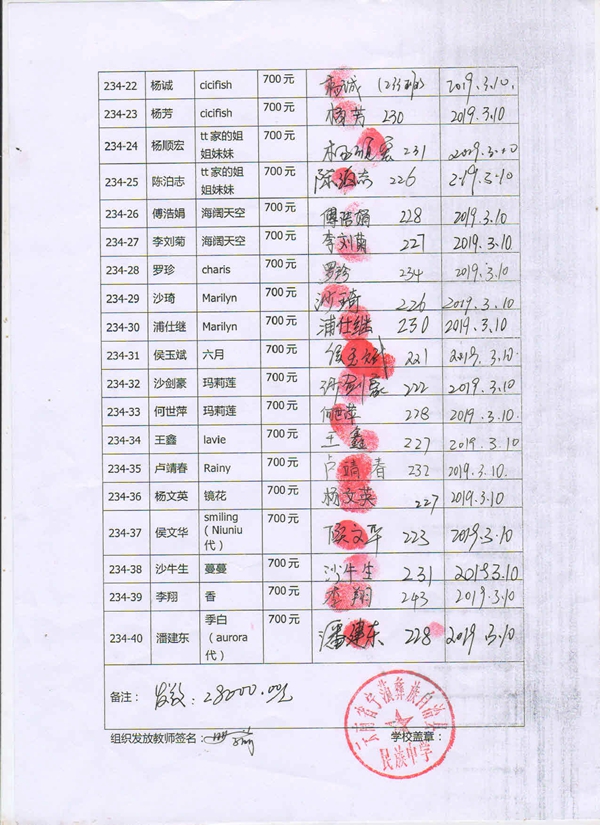 234-22 杨诚 cicifish 700元 杨诚 (233班) 2019.3.10.
234-23 杨芳 cicifish 700元 杨芳 230 2019.3.10
234-24 杨顺宏 tt家的姐姐妹妹 700元 杨顺宏 231 2019.3.10
234-25 陈泊志 tt家的姐姐妹妹 700元 陈泊志 226 2019.3.10
234-26 傅浩娟 海阔天空 700元 傅浩娟 228 2019.3.10
234-27 李刘菊 海阔天空 700元 李刘菊 227 2019.3.10
234-28 罗珍 charis 700元 罗珍 234 2019.3.10
234-29 沙琦 Marilyn 700元 沙琦 226 2019.3.10
234-30 浦仕继 Marilyn 700元 浦仕继 230 2019.3.10
234-31 侯玉斌 六月 700元 侯玉斌 221 2019.3.10
234-32 沙剑豪 玛莉莲 700元 沙剑豪 222 2019.3.10
234-33 何世萍 玛莉莲 700元 何世萍 228 2019.3.10
234-34 王鑫 lavie 700元 王鑫 227 2019.3.10
234-35 卢靖春 Rainy 700元 卢靖春 232 2019.3.10.
234-36 杨文英 镜花 700元 杨文英 227 2019.3.10
234-37 侯文华 smiling（Niuniu代） 700元 侯文华 223 2019.3.10
234-38 沙牛生 蔓蔓 700元 沙牛生 231 2019.3.10
234-39 李翔 香 700元 李翔 243 2019.3.10
234-40 潘建东 季白（aurora代） 700元 潘建东 228 2019.3.10
备注： 发放：28000.00元
组织发放教师签名： 学校盖章：
云南省宁蒗彝族自治县
民族中学